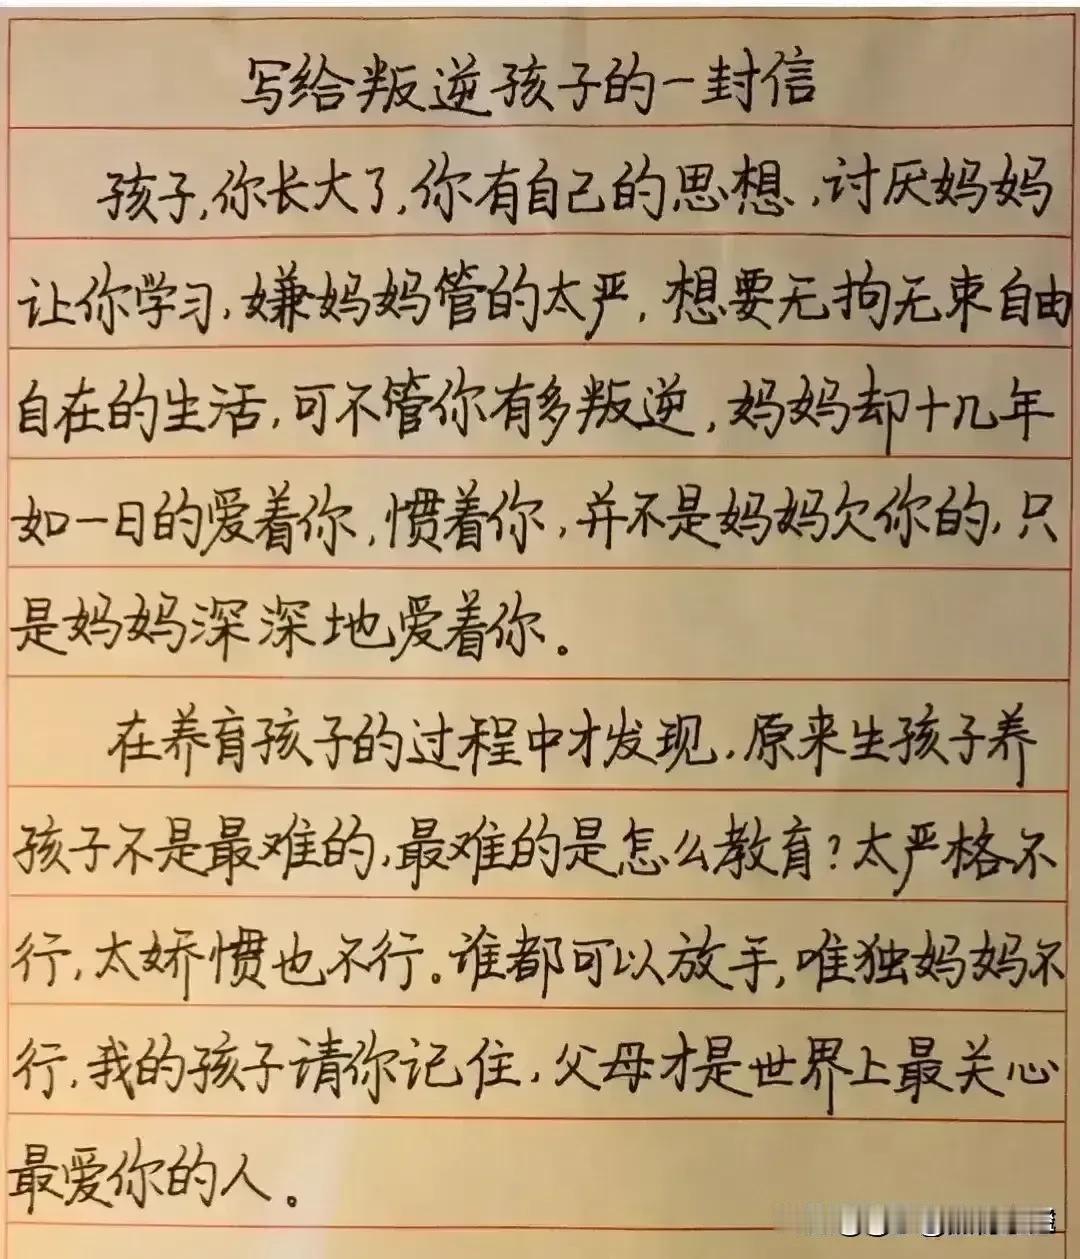 写给叛逆孩子的一封信
孩子,你长大了,你有自己的思想,讨厌妈妈
让你学习,嫌妈妈管的太严,想要无拘无束自由
自在的生活,可不管你有多叛逆,妈妈却十几年
如一日的爱着你,惯着你,并不是妈妈欠你的,只
是妈妈深深地爱着你。
在养育孩子的过程中才发现,原来生孩子养
孩子不是最难的,最难的是怎么教育?太严格不
行,太娇惯也不行。谁都可以放手,唯独妈妈不
行,我的孩子请你记住,父母才是世界上最关心
最爱你的人。